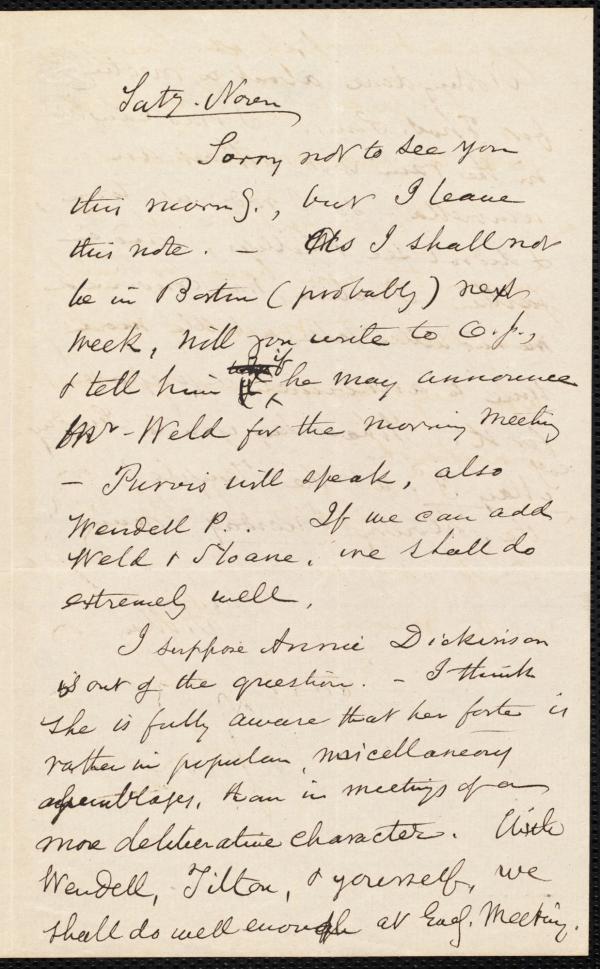 Saty. Noon
Sorry not to see you
this morng., but I leave
this note. — As I shall not
be in Boston (probably) next
week, will you write to O. J.,
& tell him if he may announce
Mr. Weld for the morning Meeting
— Purvis will speak, also
Wendell P. If we can add
Weld & Sloane, we shall do
extremely well.
I suppose Annie Dickinson
is out of the question. — I think
she is fully aware that her forte is
rather in popular, miscellaneous
assemblages, than in meetings of a
more deliberative character. With
Wendell, Tilton, & yourself, we
shall do well enough at Eveg. Meeting.